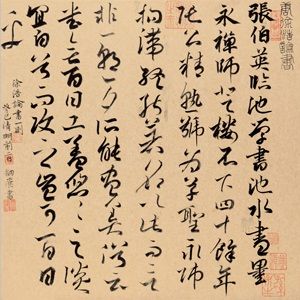 唐徐浩論書
張伯英臨池学書池水盡墨
永禪師登樓不下四十餘年
張公精熟號為草聖永師
拘滯終著能名以此而言
非一朝一夕所能盡美俗云
書無百日工蓋悠悠之談
宜白首攻之豈可百日
乎
徐浩論書一則
癸巳清明前二日 書